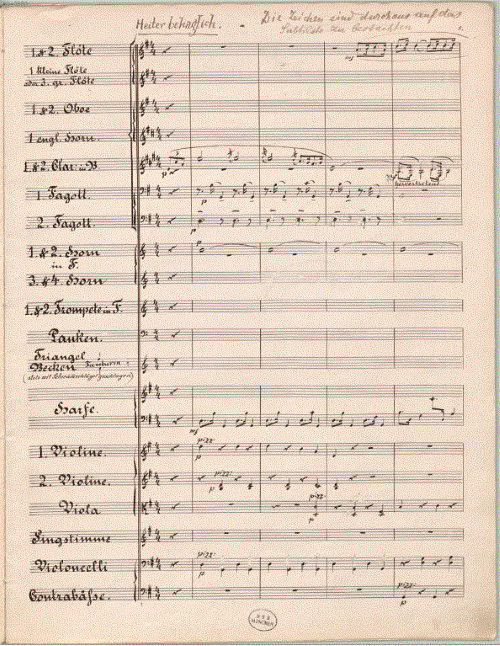 Heiter behaglich. - Die Zeichen sind durchaus auf das
Subtilste zu beobachten
1.&2. Flöte
1 kleine Flöte
oder 3. gr. Flöte
1.&2. Oboe
1 engl. Horn.
1.&2. Clar. in B
1. Fagott.
2. Fagott.
1.&2. Horn
in F.
3.&4. Horn
1.&2. Trompete in F.
Pauken.
Triangel
Becken Tamburin
Harfe.
1. Violine.
2. Violine.
Viola
Singstimme
Violoncelli
Contrabässe.
mf
p
p
p
p
mf
pizz.
p
pizz.
p
pizz.
p
pizz.
p
pizz.
p